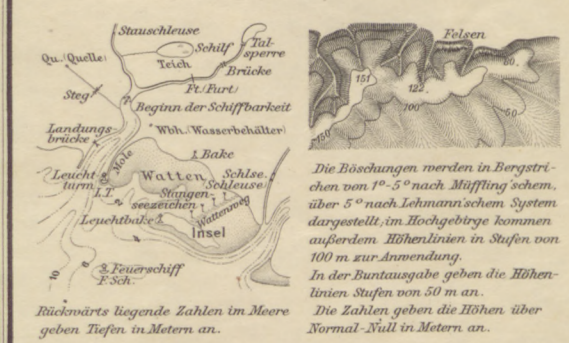 Stauschleuse
Schilf
Tal-
sperre
Qu.(Quelle)
Teich
Brücke
Steg
Ft.(Furt)
Beginn der Schiffbarkeit
Landungs-
brücke
Wbh.(Wasserbehälter)
Mole
Bake
Leucht-
turm
L.T.
Watten
Schlse.
Schleuse
Stangen-
seezeichen
Wattenweg
Leuchtbake
Insel
2
4
6
10
Feuerschiff
F. Sch.
Rückwärts liegende Zahlen im Meere
geben Tiefen in Metern an.
Felsen
151
122
80
100
50
150
Die Böschungen werden in Bergstri-
chen von 1°-5° nach Müffling'schem,
über 5° nach Lehmann'schem System
dargestellt; im Hochgebirge kommen
außerdem Höhenlinien in Stufen von
100 m zur Anwendung.
In der Buntausgabe geben die Höhen-
linien Stufen von 50 m an.
Die Zahlen geben die Höhen über
Normal-Null in Metern an.